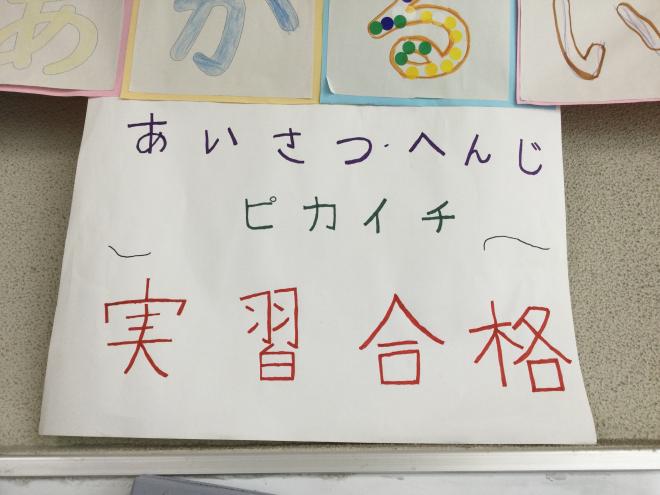 あかるい
あいさつ・へんじ
ピカイチ
実習合格